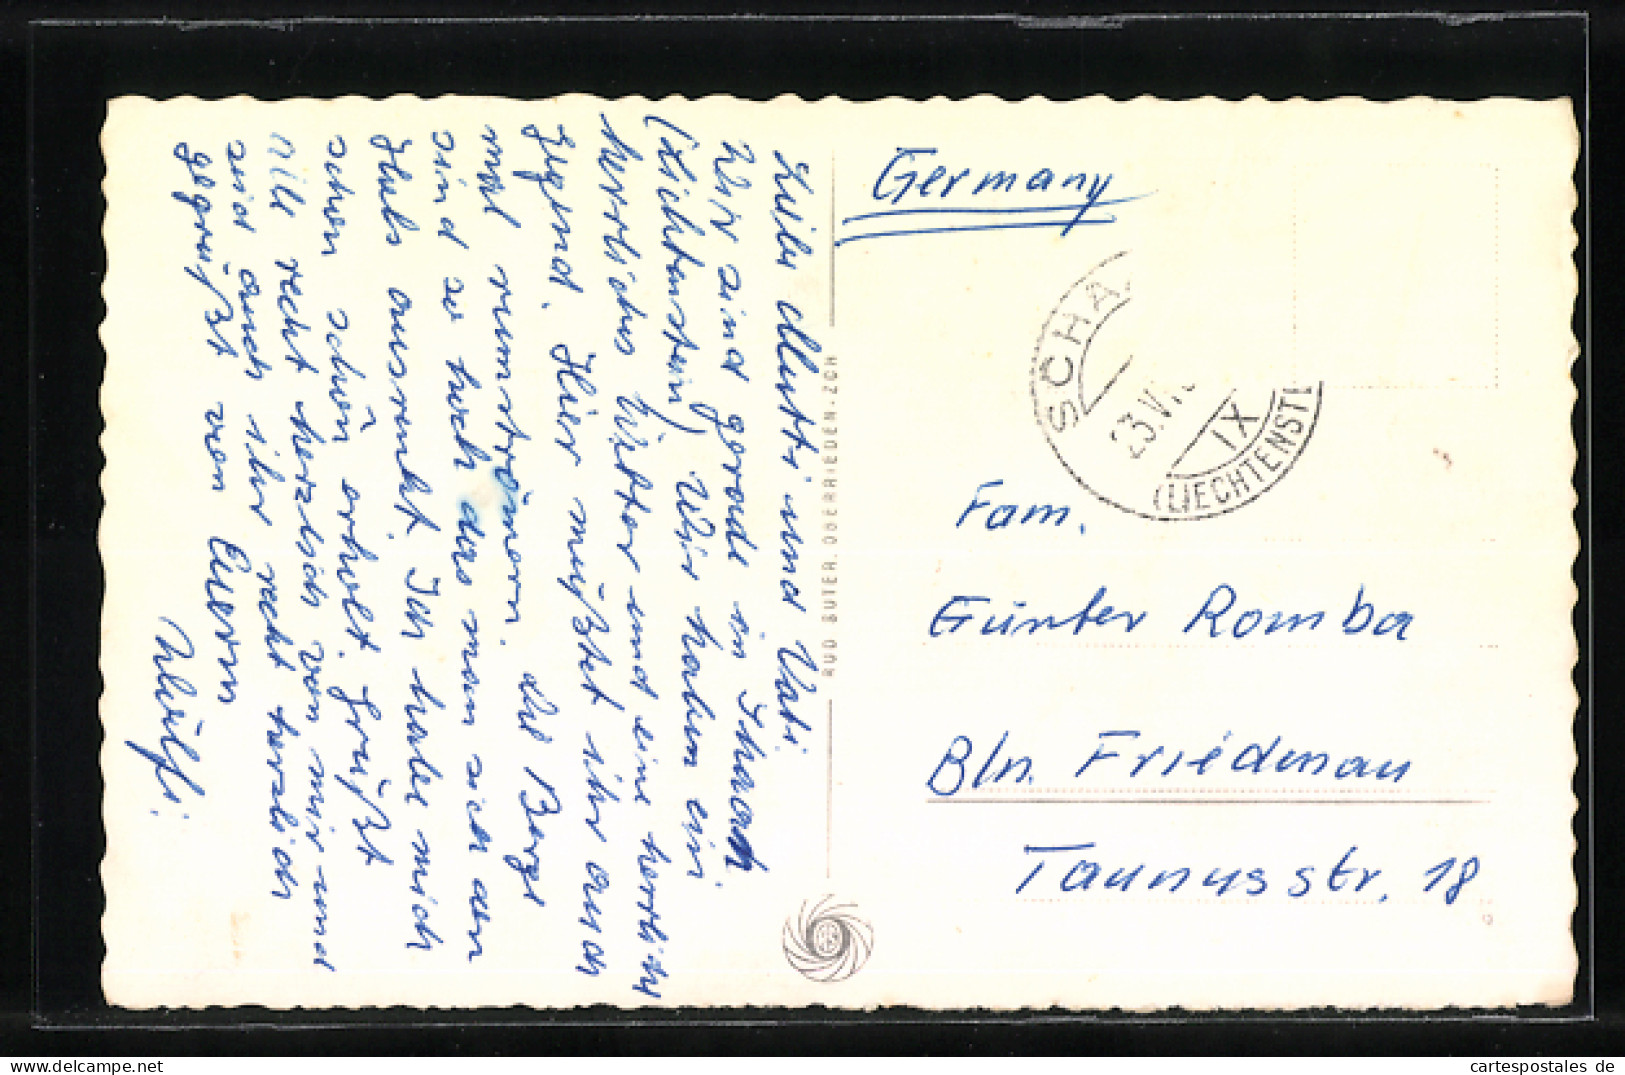 Liebe Mutti und Vati.
Wir sind gerade in Schaan
(Lichtenstein) Wir haben ein
herrliches Wetter und eine herrliche
Jegend. Hier müßtet ihr auch
mal rumströmern. die Berge
sind so hoch das man sich den
Hals ausrenkt. Ich habe mich
schon schön erholt. Grüßt
alle recht herzlich von mir und
seid auch ihr recht herzlich
gegrüßt von Euerm
RUD SUTER, OBERRIEDEN-ZCH
Germany
SCHA
23.VI
IX
(LIECHTENST
Fam.
Günter Romba
Bln. Friedenau
Taunusstr. 18
cartespostales de